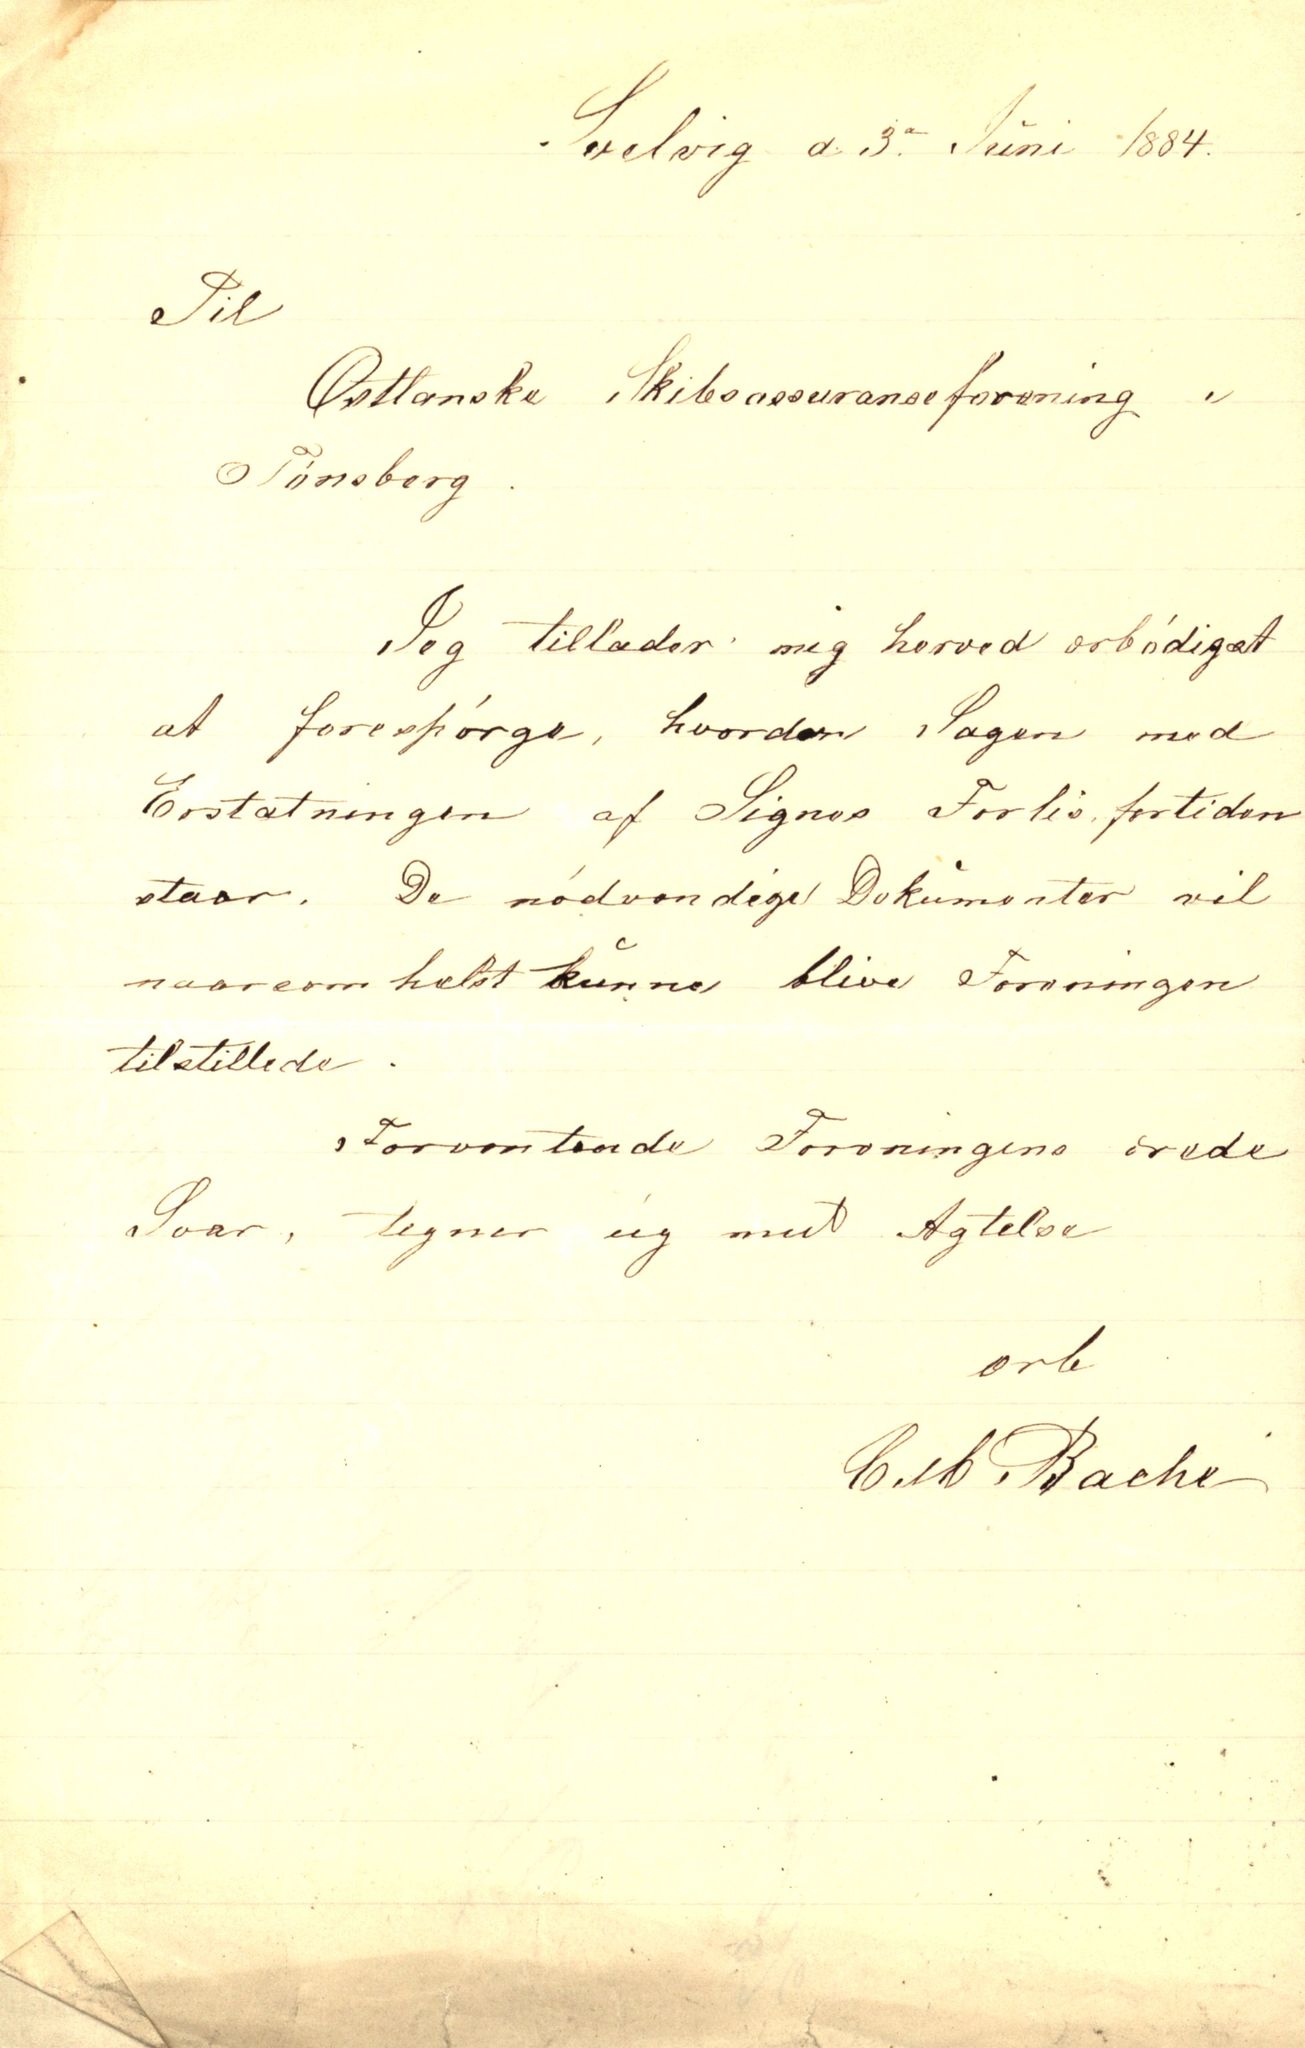 Svelvig d. 3die Juni 1884.
Til
Østlanske Skibsassuranseforening i
Tönsberg.
Jeg tillader mig herved erbödigst
at forespörge, hvordan Sagen med
Erstatningen af Signes Forlis, fortiden
staar. De nödvendige Dokumenter vil
naarsomhelst kunne blive Foreningen
tilstillede.
Forventende Foreningens ærede
Svar, tegner jeg med Agtelse
ærb
C. M. Bache